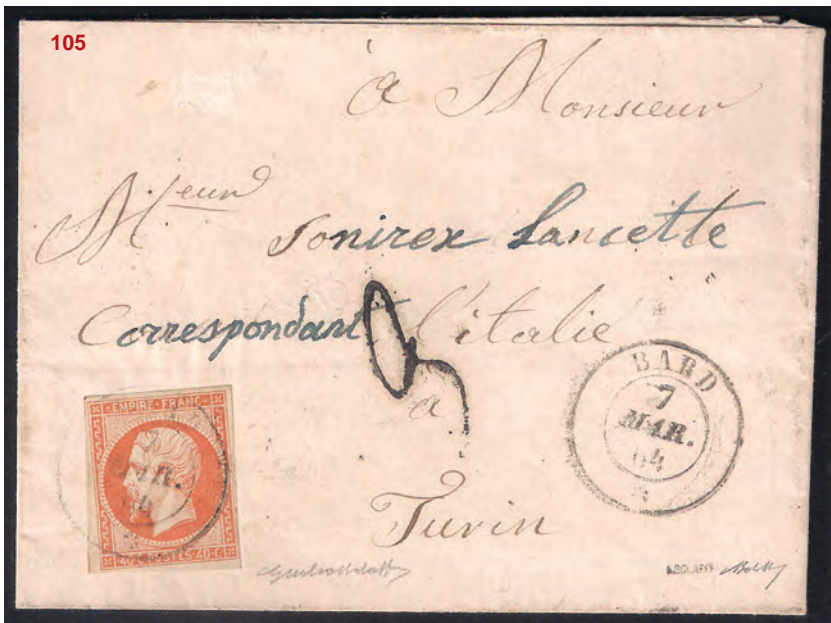 105
à Monsieur
Mieur Sonirex Lancette
Correspondant l'italie
a
Turin
BARD
7
MAR.
64
EMPIRE FRANC
MAR.
64
40 C POSTES 40 C